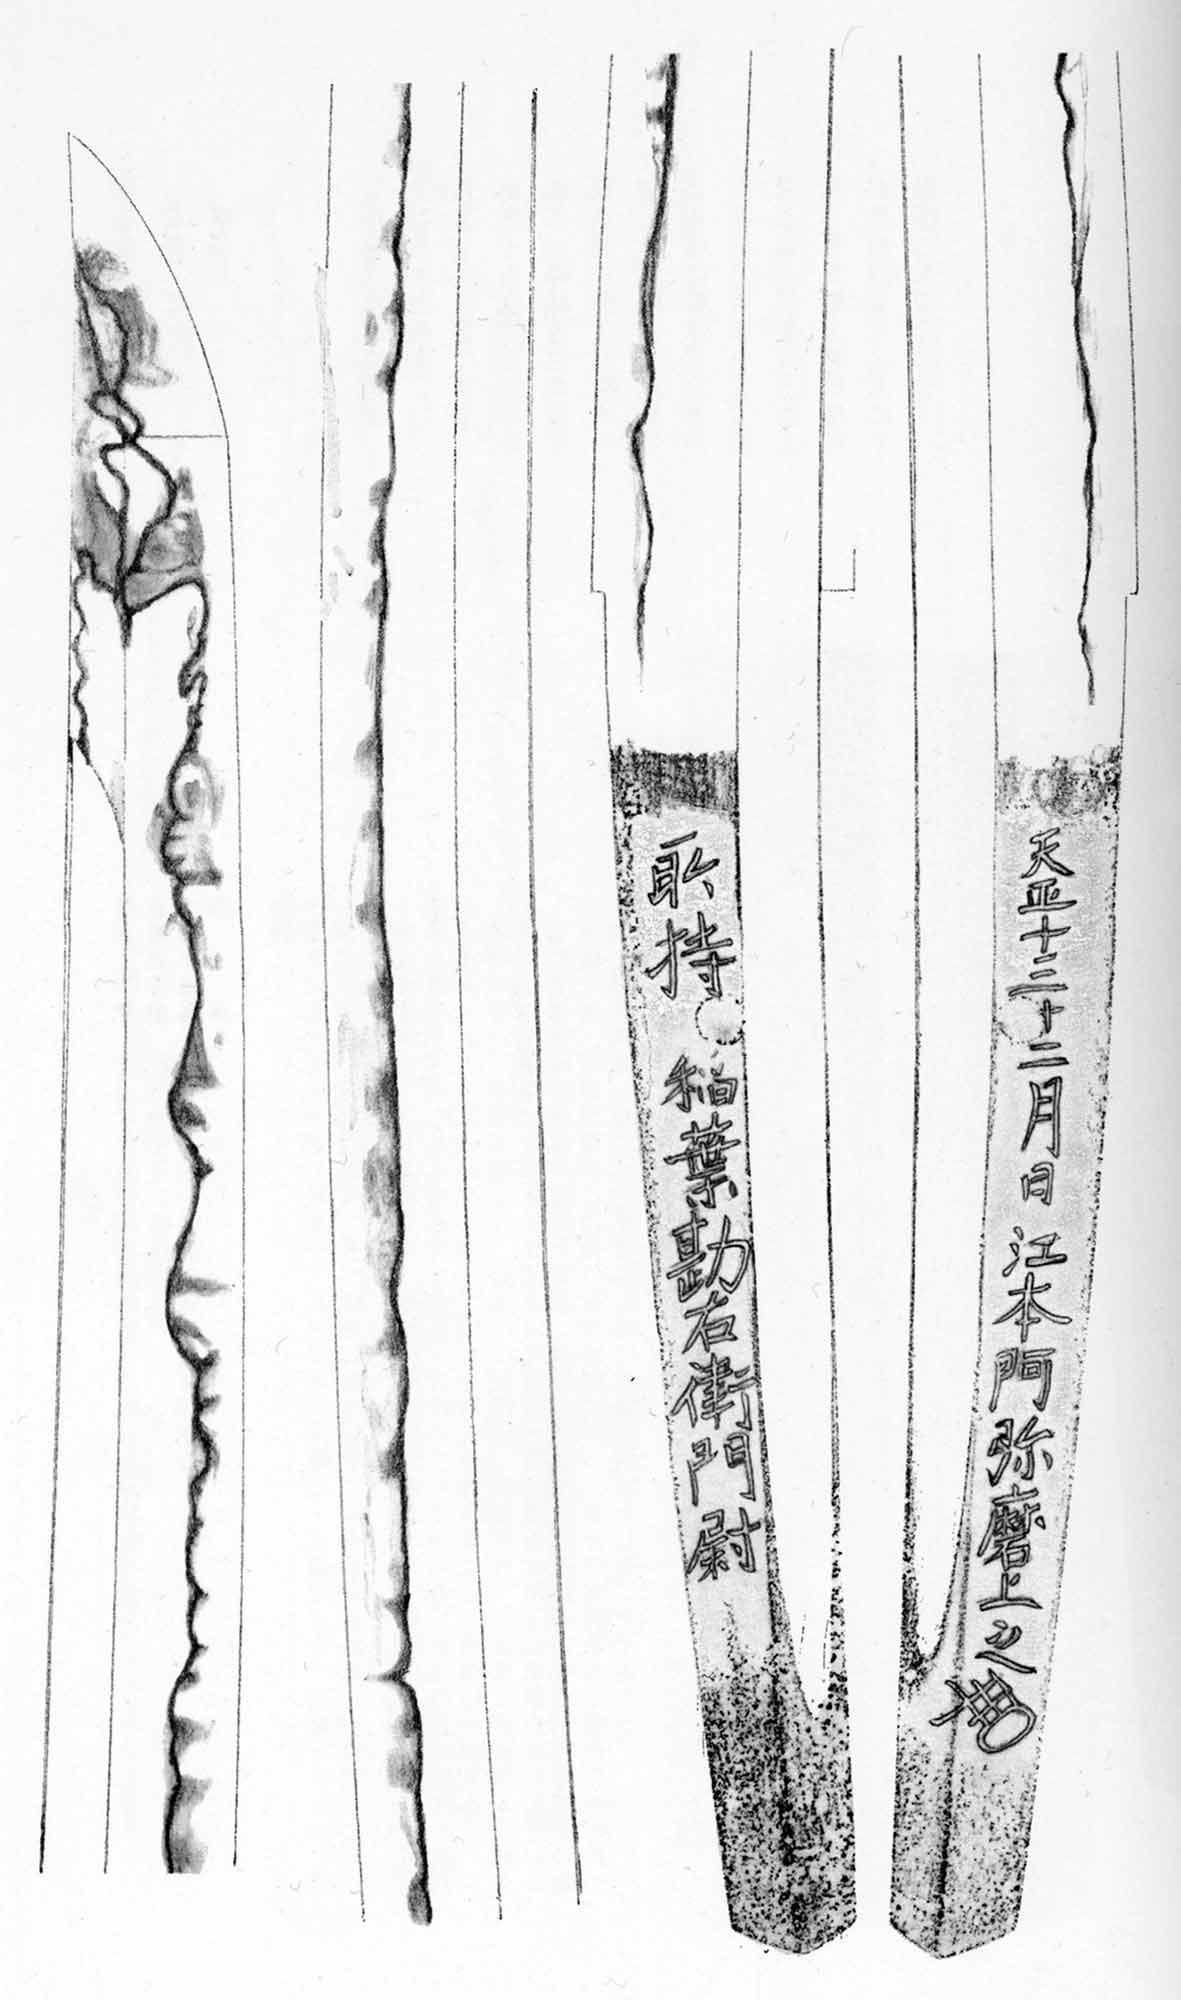 天正十三十二月日 江本阿弥磨上之
所持 稲葉勘右衛門尉